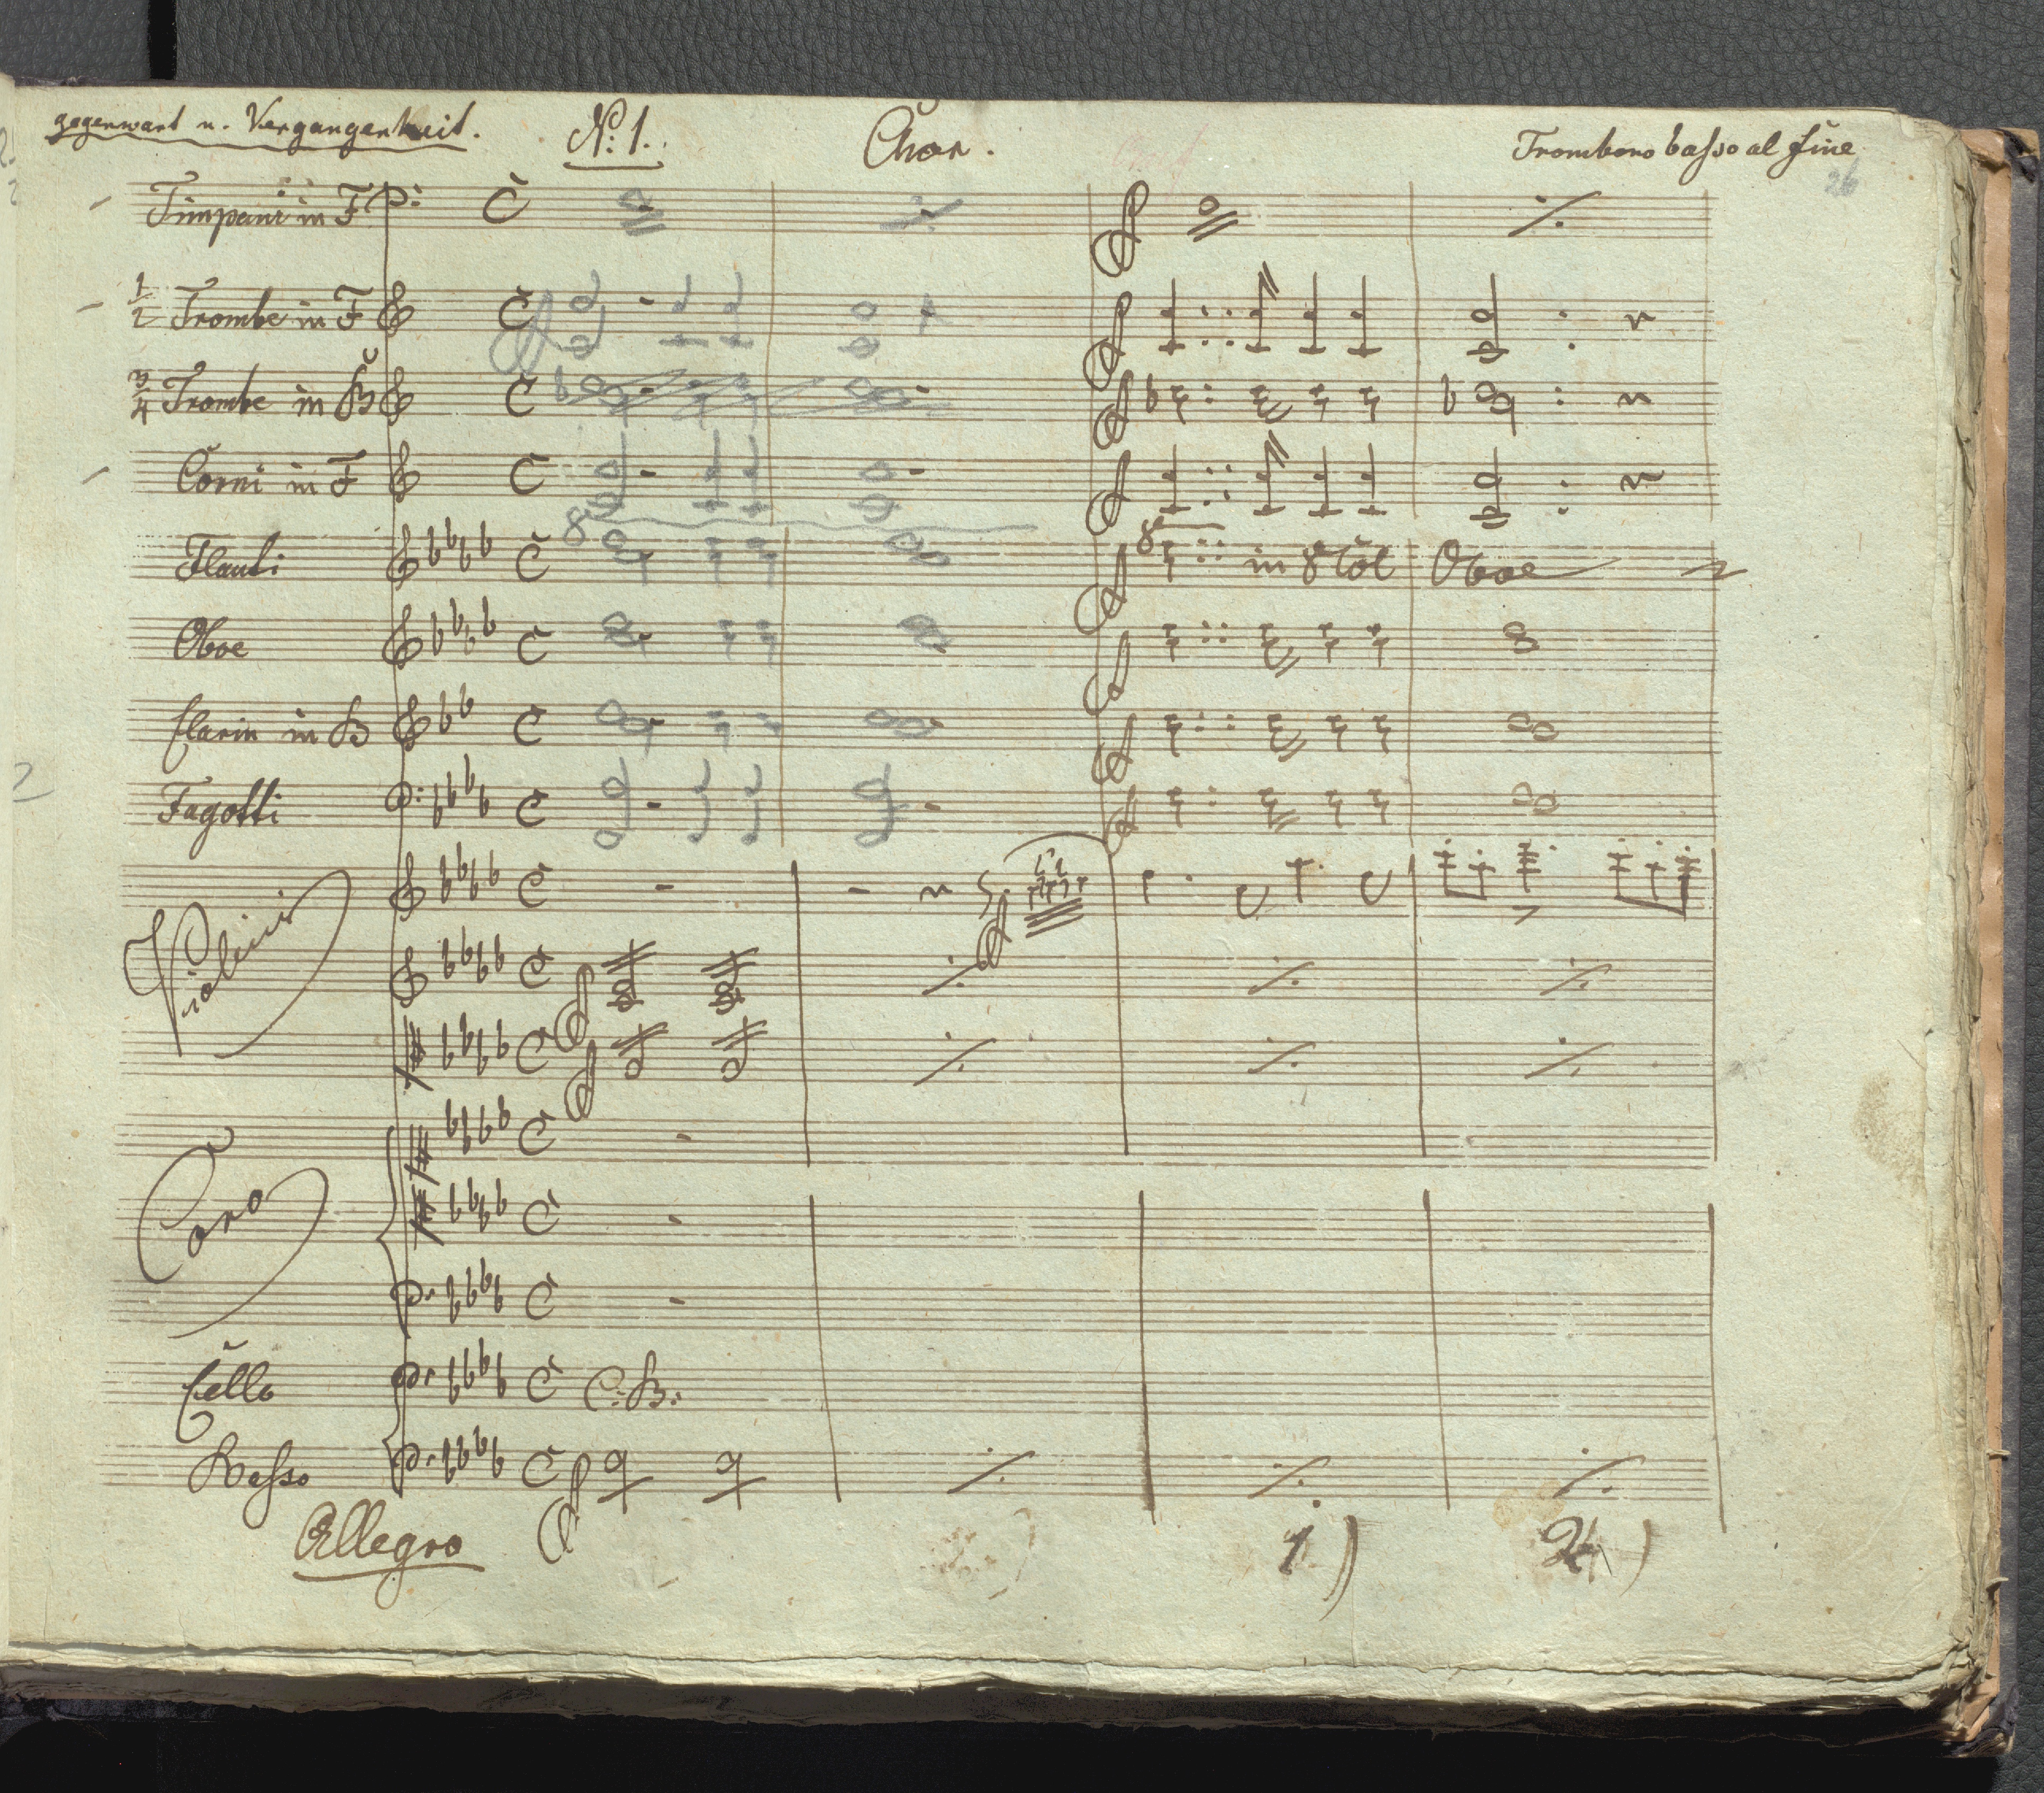 gegenwart u. Vergangenheit. No: 1. Chor. Trombono basso al Fine
26
Timpani in F
1/2 Trombe in F
3/4 Trombe in B
Corni in F
8
Flauti 8 in 8 Col Oboe
Oboe
Clarin in B
Fagotti
Violini
Coro
Cello C: B:
Basso
Allegro 1) 2)